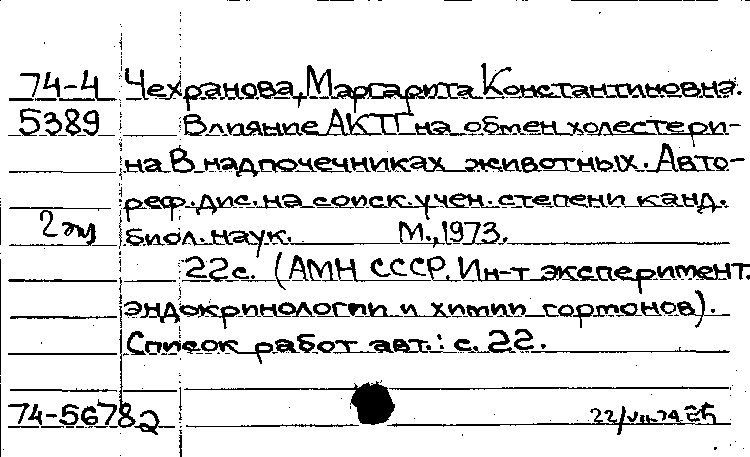 74-4 Чехранова, Маргарита Константиновна.
5389 Влияние АКТГ на обмен холестери-
на в надпочечниках животных. Авто-
реф. дис. на соиск. учен. степени канд.
2 экз биол. наук. М., 1973.
22 с. (АМН СССР. Ин-т эксперимент.
эндокринологии и химии гормонов).
Список работ авт.: с. 22.
74-56782 22/VII-74